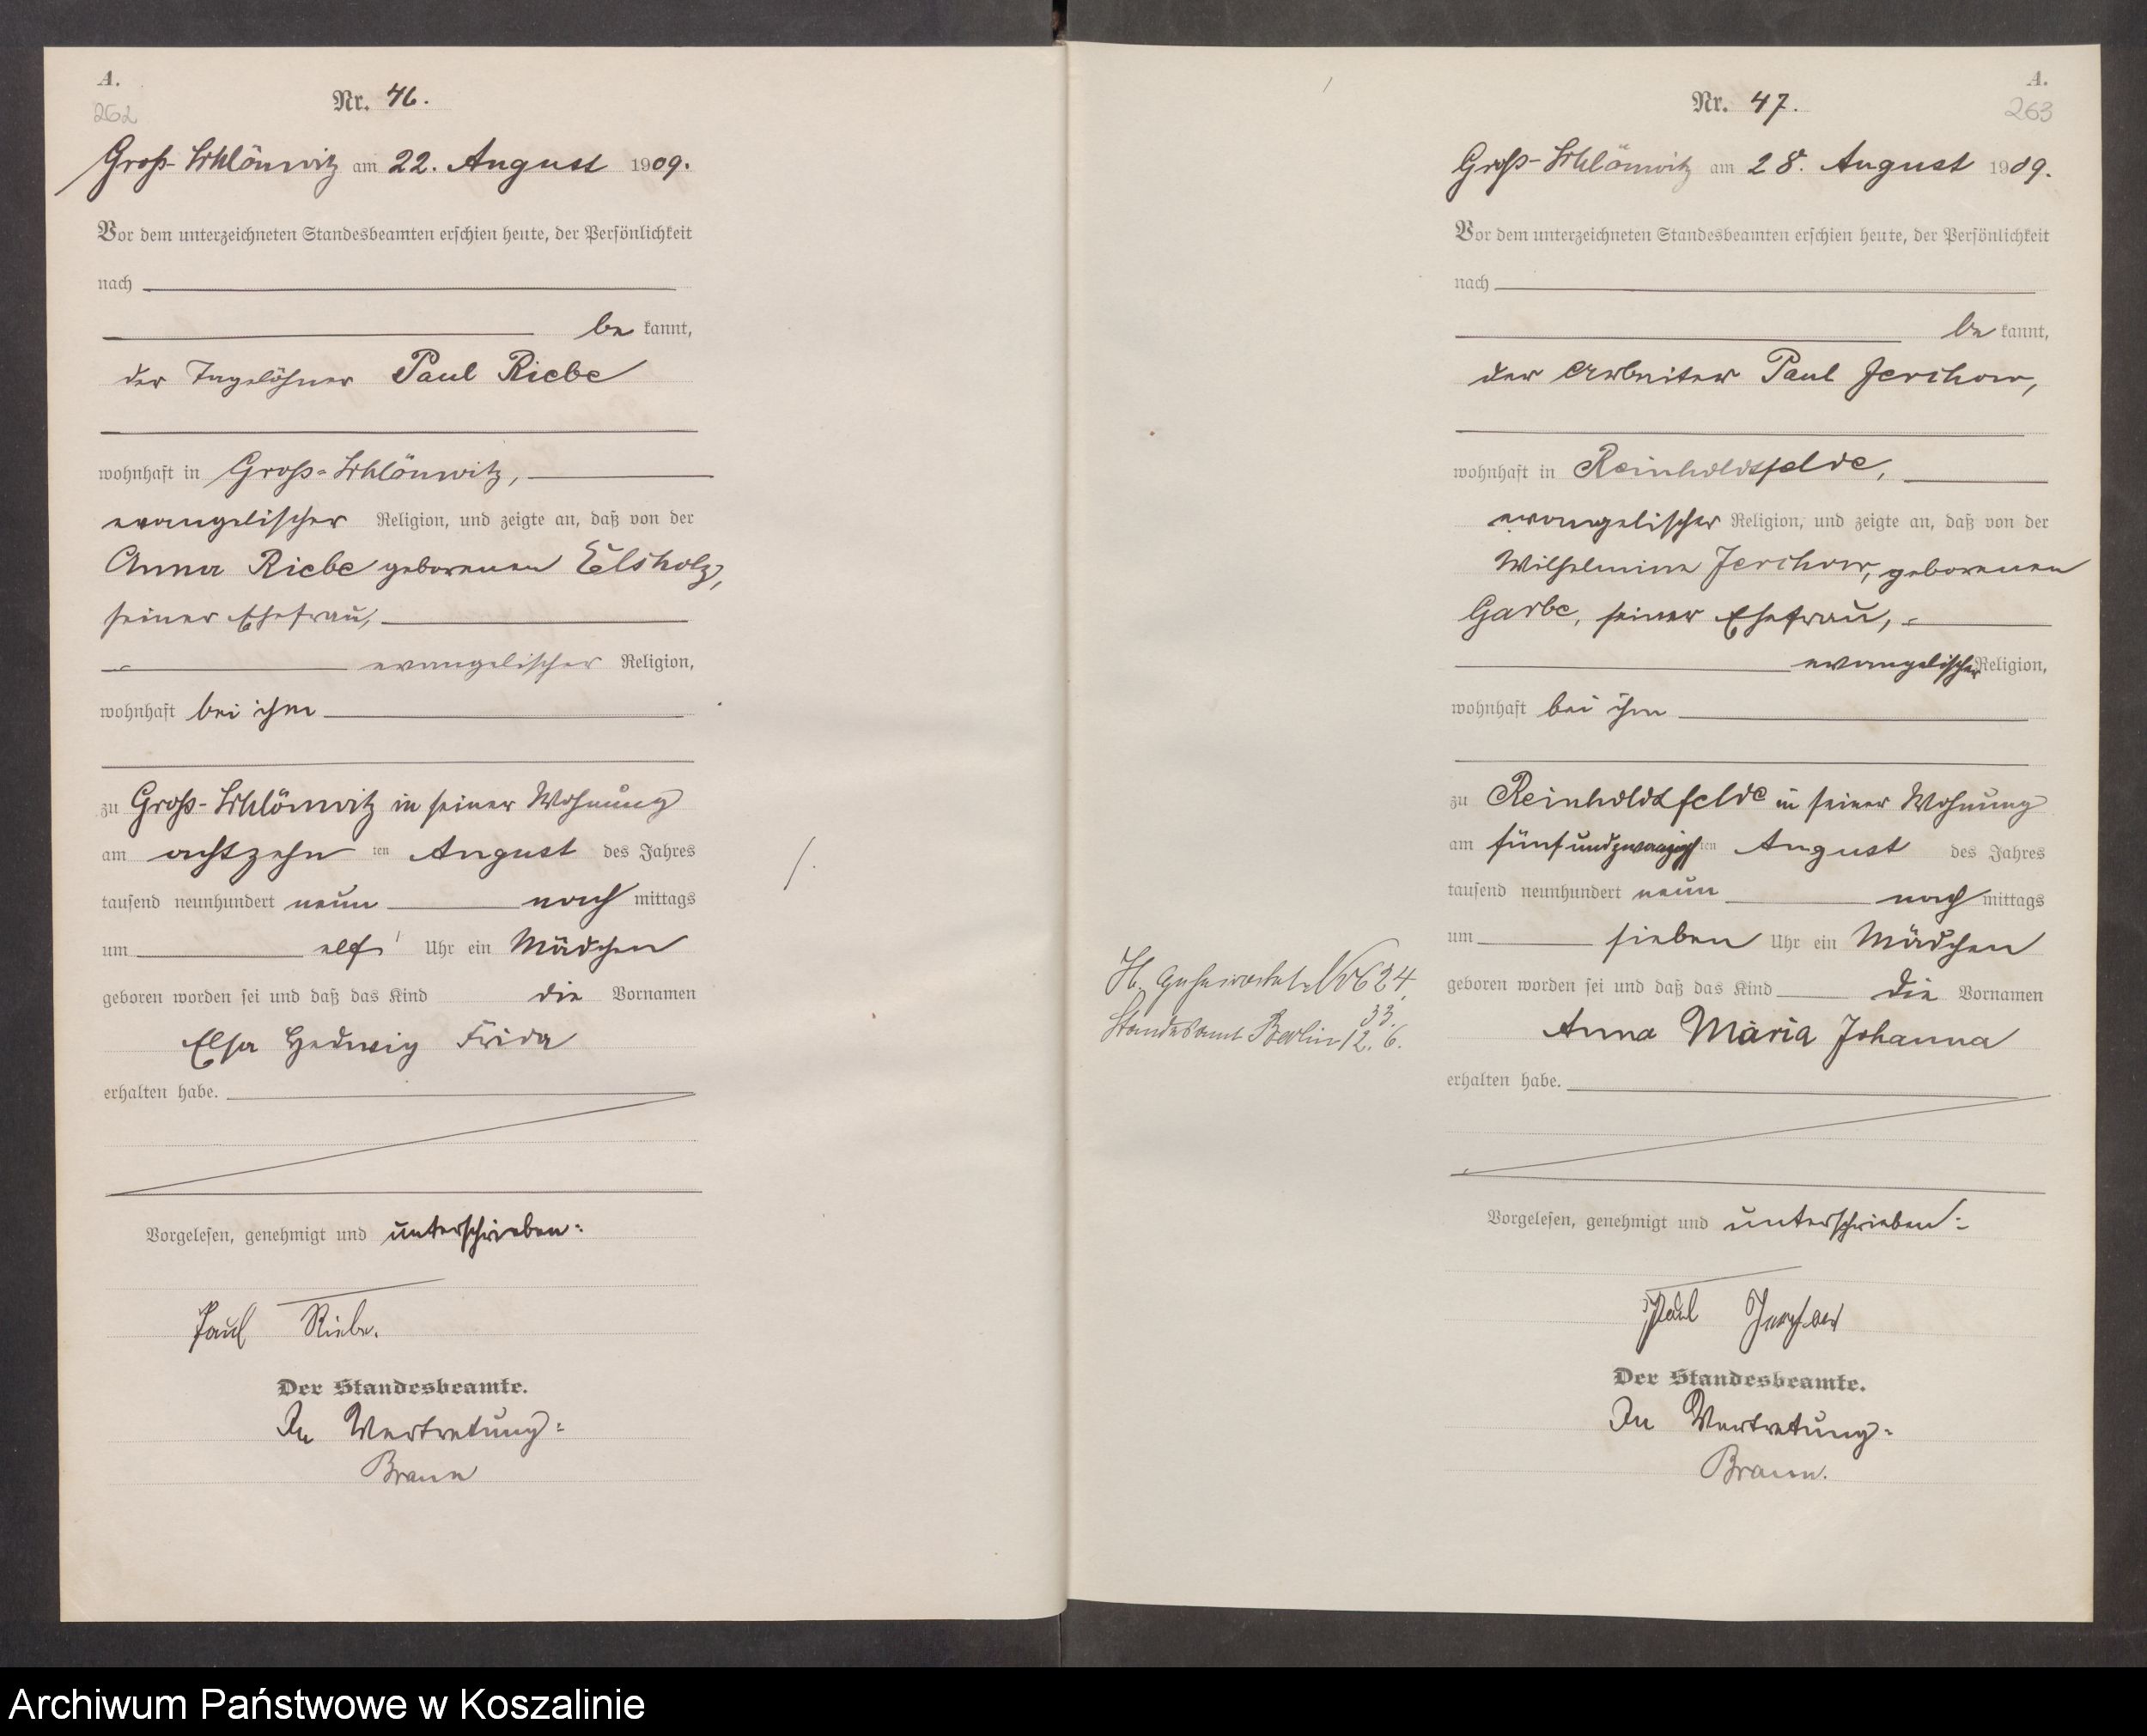 A.
262
Nr. 46.
Groß-Schlönwitz am 22. August 1909.
Vor dem unterzeichneten Standesbeamten erschien heute, der Persönlichkeit
nach
be kannt,
der Tagelöhner Paul Riebe
wohnhaft in Groß-Schlönwitz,
evangelischer Religion, und zeigte an, daß von der
Anna Riebe geborenen Elsholz,
seiner Ehefrau,
evangelischer Religion,
wohnhaft bei ihm
zu Groß-Schlönwitz in seiner Wohnung
am achtzehn ten August des Jahres
tausend neunhundert neun nach mittags
um elf Uhr ein Mädchen
geboren worden sei und daß das Kind die Vornamen
Elsa Hedwig Frida
erhalten habe.
Vorgelesen, genehmigt und unterschrieben:
Paul Riebe.
Der Standesbeamte.
In Vertretung:
Braun
A.
263
Nr. 47.
Groß-Schlönwitz am 28. August 1909.
Vor dem unterzeichneten Standesbeamten erschien heute, der Persönlichkeit
nach
be kannt,
der Arbeiter Paul Jerchow,
wohnhaft in Reinholdsfelde,
evangelischer Religion, und zeigte an, daß von der
Wilhelmine Jerchow, geborenen
Garbe, seiner Ehefrau,
evangelischer Religion,
wohnhaft bei ihm
zu Reinholdsfelde in seiner Wohnung
am fünfundzwanzigsten August des Jahres
tausend neunhundert neun nach mittags
um sieben Uhr ein Mädchen
geboren worden sei und daß das Kind die Vornamen
Anna Maria Johanna
erhalten habe.
Vorgelesen, genehmigt und unterschrieben:
Paul Jerchow
Der Standesbeamte.
In Vertretung:
Braun.
H. geheiratet No 624
33.
Standesamt Berlin 12. 6.
Archiwum Państwowe w Koszalinie